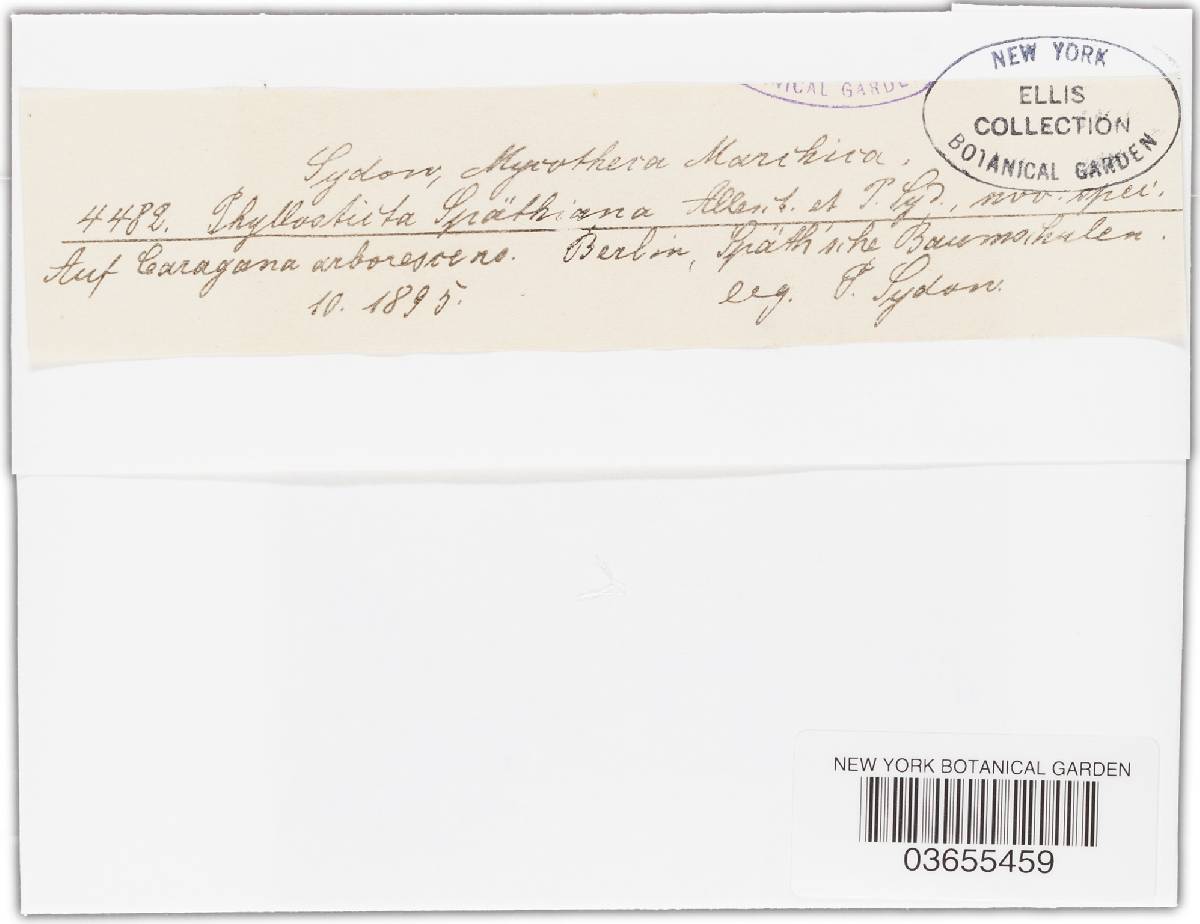 NEW YORK
ELLIS
COLLECTION
BOTANICAL GARDEN
Sydow, Mycotheca Marchica.
4482. Phyllosticta Späthiana Allesch. et P. Syd., nov. spec.
Auf Caragana arborescens. Berlin, Späth'sche Baumschulen.
10. 1895. leg. P. Sydow.
NEW YORK BOTANICAL GARDEN
03655459